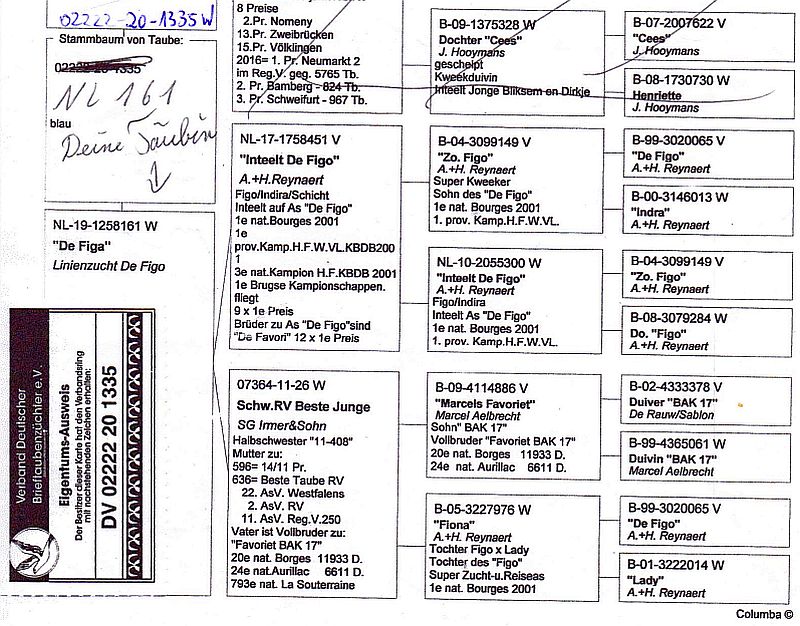 02222-20-1335 W
Stammbaum von Taube:
02222 20 1335
NL 161
blau
Deine Täubin
NL-19-1258161 W
"De Figa"
Linienzucht De Figo
Verband Deutscher
Brieftaubenzüchter e.V.
Eigentums-Ausweis
Der Besitzer dieser Karte hat den Verbandsring
mit nachstehenden Zeichen erhalten:
DV 02222 20 1335
8 Preise
2.Pr. Nomeny
13.Pr. Zweibrücken
15.Pr. Völklingen
2016= 1. Pr. Neumarkt 2
im Reg.V. geg. 5765 Tb.
2. Pr. Bamberg - 824 Tb.
3. Pr. Schweifurt - 967 Tb.
NL-17-1758451 V
"Inteelt De Figo"
A.+H.Reynaert
Figo/Indira/Schicht
Inteelt auf As "De Figo"
1e nat.Bourges 2001
1e
prov.Kamp.H.F.W.VL.KBDB200
1
3e nat.Kampion H.F.KBDB 2001
1e Brugse Kampionschappen.
fliegt
9 x 1e Preis
Brüder zu As "De Figo"sind
"De Favori" 12 x 1e Preis
07364-11-26 W
Schw.RV Beste Junge
SG Irmer&Sohn
Halbschwester "11-408"
Mutter zu:
596= 14/11 Pr.
636= Beste Taube RV
22. AsV. Westfalens
2. AsV. RV
11. AsV. Reg.V.250
Vater ist Vollbruder zu:
"Favoriet BAK 17"
20e nat. Borges 11933 D.
24e nat.Aurillac 6611 D.
793e nat. La Souterraine
B-09-1375328 W
Dochter "Cees"
J. Hooymans
gescheipt
Kweekduivin
Inteelt Jonge Bliksem en Dirkje
B-04-3099149 V
"Zo. Figo"
A.+H. Reynaert
Super Kweeker
Sohn des "De Figo"
1e nat. Bourges 2001
1. prov. Kamp.H.F.W.VL.
NL-10-2055300 W
"Inteelt De Figo"
A.+H. Reynaert
Figo/Indira
Inteelt As "De Figo"
1e nat. Bourges 2001
1. prov. Kamp.H.F.W.VL.
B-09-4114886 V
"Marcels Favoriet"
Marcel Aelbrecht
Sohn" BAK 17"
Vollbruder "Favoriet BAK 17"
20e nat. Borges 11933 D.
24e nat. Aurillac 6611 D.
B-05-3227976 W
"Fiona"
A.+H. Reynaert
Tochter Figo x Lady
Tochter des "Figo"
Super Zucht-u.Reiseas
1e nat. Bourges 2001
B-07-2007622 V
"Cees"
J. Hooymans
B-08-1730730 W
Henriette
J. Hooymans
B-99-3020065 V
"De Figo"
A.+H. Reynaert
B-00-3146013 W
"Indra"
A.+H. Reynaert
B-04-3099149 V
"Zo. Figo"
A.+H. Reynaert
B-08-3079284 W
Do. "Figo"
A.+H. Reynaert
B-02-4333378 V
Duiver "BAK 17"
De Rauw/Sablon
B-99-4365061 W
Duivin "BAK 17"
Marcel Aelbrecht
B-99-3020065 V
"De Figo"
A.+H. Reynaert
B-01-3222014 W
"Lady"
A.+H. Reynaert
Columba ©